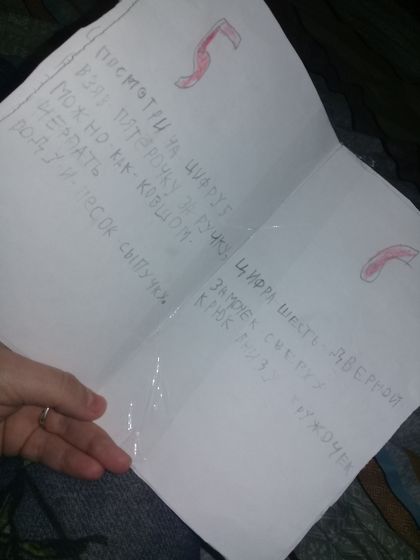 5
ПОСМОТРИ НА ЦИФРУ 5
ВЗЯВ ПЯТЁРОЧКУ ЗА РУЧКУ,
МОЖНО КАК КОВШОМ
ЧЕРПАТЬ
ВОДУ И ПЕСОК СЫПУЧИЙ.
6
ЦИФРА ШЕСТЬ - ДВЕРНОЙ
ЗАМОЧЕК СВЕРХУ
КРЮК ВНИЗУ КРУЖОЧЕК